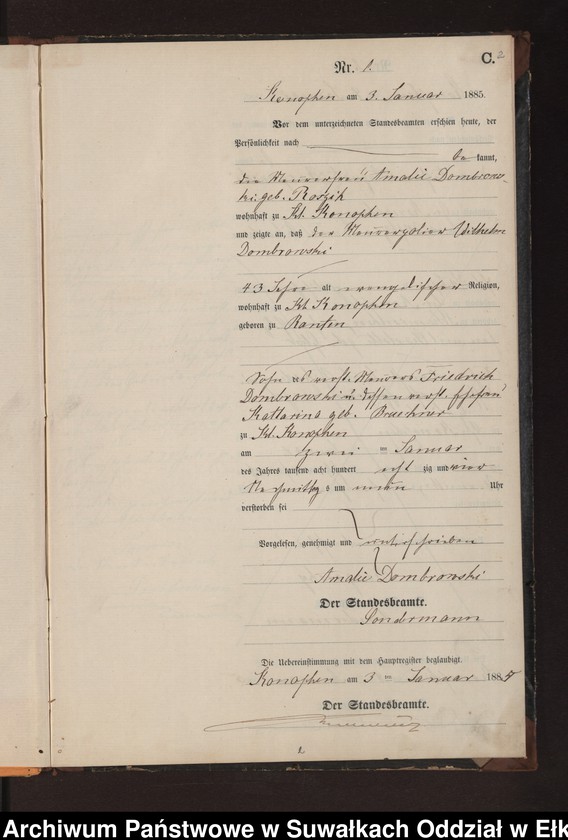 C. 2
Nr. 1.
Konopken am 3. Januar 1885.
Vor dem unterzeichneten Standesbeamten erschien heute, der
Persönlichkeit nach
be kannt,
die Maurerfrau Amalie Dombrows-
ki geb. Roszik
wohnhaft zu Kl. Konopken
und zeigte an, daß der Maurerpolier Wilhelm
Dombrowski
43 Jahre alt evangelischer Religion,
wohnhaft zu Kl. Konopken
geboren zu Ranten
Sohn des verst. Maurers Friedrich
Dombrowski u. dessen verst. Ehefrau
Katharina geb.
zu Kl. Konopken
am zwei ten Januar
des Jahres tausend acht hundert acht zig und vier
Nachmittag s um neun Uhr
verstorben sei
Vorgelesen, genehmigt und unterschrieben
Amalie Dombrowski
Der Standesbeamte.
Sondermann
Die Uebereinstimmung mit dem Hauptregister beglaubigt.
Konopken am 3 ten Januar 1885
Der Standesbeamte.
1.
Archiwum Państwowe w Suwałkach Oddział w Ełk